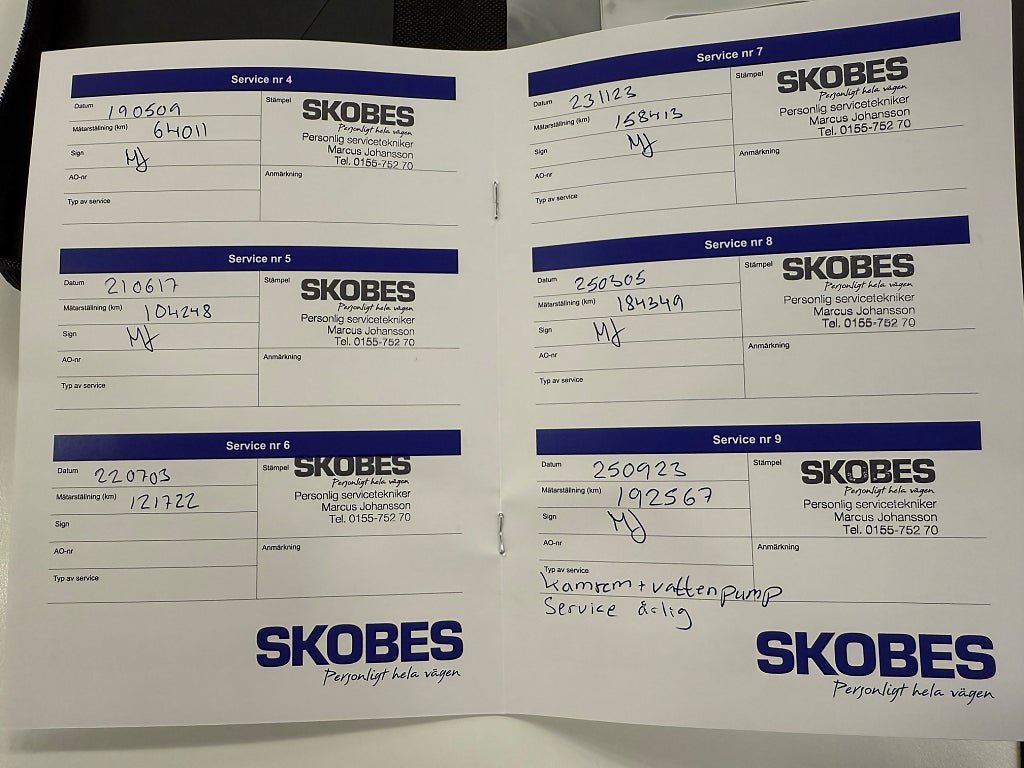 Service nr 4
Datum 190509
Mätarställning (km) 64011
Sign MJ
AO-nr
Typ av service
Stämpel SKOBES
Personligt hela vägen
Personlig servicetekniker
Marcus Johansson
Tel. 0155-752 70
Anmärkning
Service nr 5
Datum 210617
Mätarställning (km) 104248
Sign MJ
AO-nr
Typ av service
Stämpel SKOBES
Personligt hela vägen
Personlig servicetekniker
Marcus Johansson
Tel. 0155-752 70
Anmärkning
Service nr 6
Datum 220703
Mätarställning (km) 121722
Sign
AO-nr
Typ av service
Stämpel SKOBES
Personligt hela vägen
Personlig servicetekniker
Marcus Johansson
Tel. 0155-752 70
Anmärkning
SKOBES
Personligt hela vägen
Service nr 7
Datum 231123
Mätarställning (km) 158413
Sign MJ
AO-nr
Typ av service
Stämpel SKOBES
Personligt hela vägen
Personlig servicetekniker
Marcus Johansson
Tel. 0155-752 70
Anmärkning
Service nr 8
Datum 250305
Mätarställning (km) 184349
Sign MJ
AO-nr
Typ av service
Stämpel SKOBES
Personligt hela vägen
Personlig servicetekniker
Marcus Johansson
Tel. 0155-752 70
Anmärkning
Service nr 9
Datum 250923
Mätarställning (km) 192567
Sign MJ
AO-nr
Typ av service
Kamrem + vattenpump
Service årlig
Stämpel SKOBES
Personligt hela vägen
Personlig servicetekniker
Marcus Johansson
Tel. 0155-752 70
Anmärkning
SKOBES
Personligt hela vägen